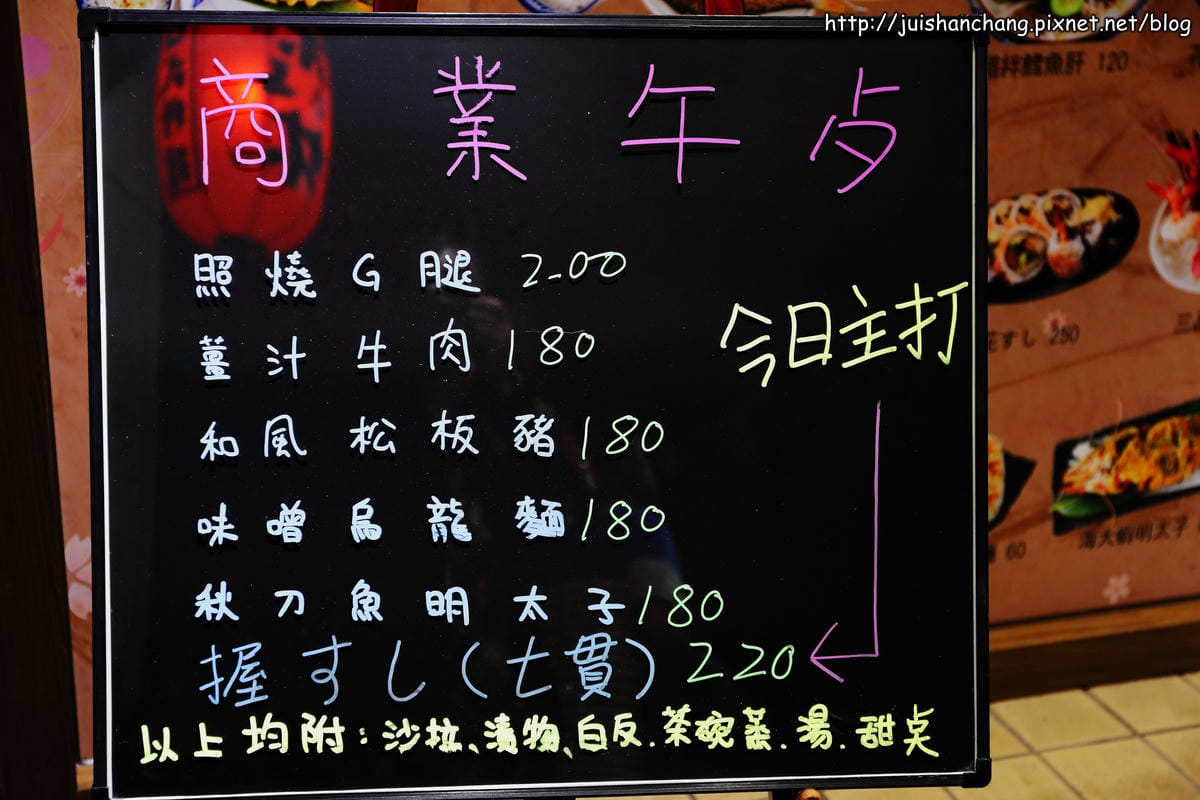 http://juishanchang.pixnet.net/blog
商業午卢
照燒G腿 200
薑汁牛肉 180
和風松板豬 180
味噌烏龍麵 180
秋刀魚明太子 180
握すし(七貫) 220
今日主打
以上均附:沙拉、漬物、白反.茶碗蒸.湯.甜点
拌鱈魚肝 120
すし 250
60
海大蝦明太子